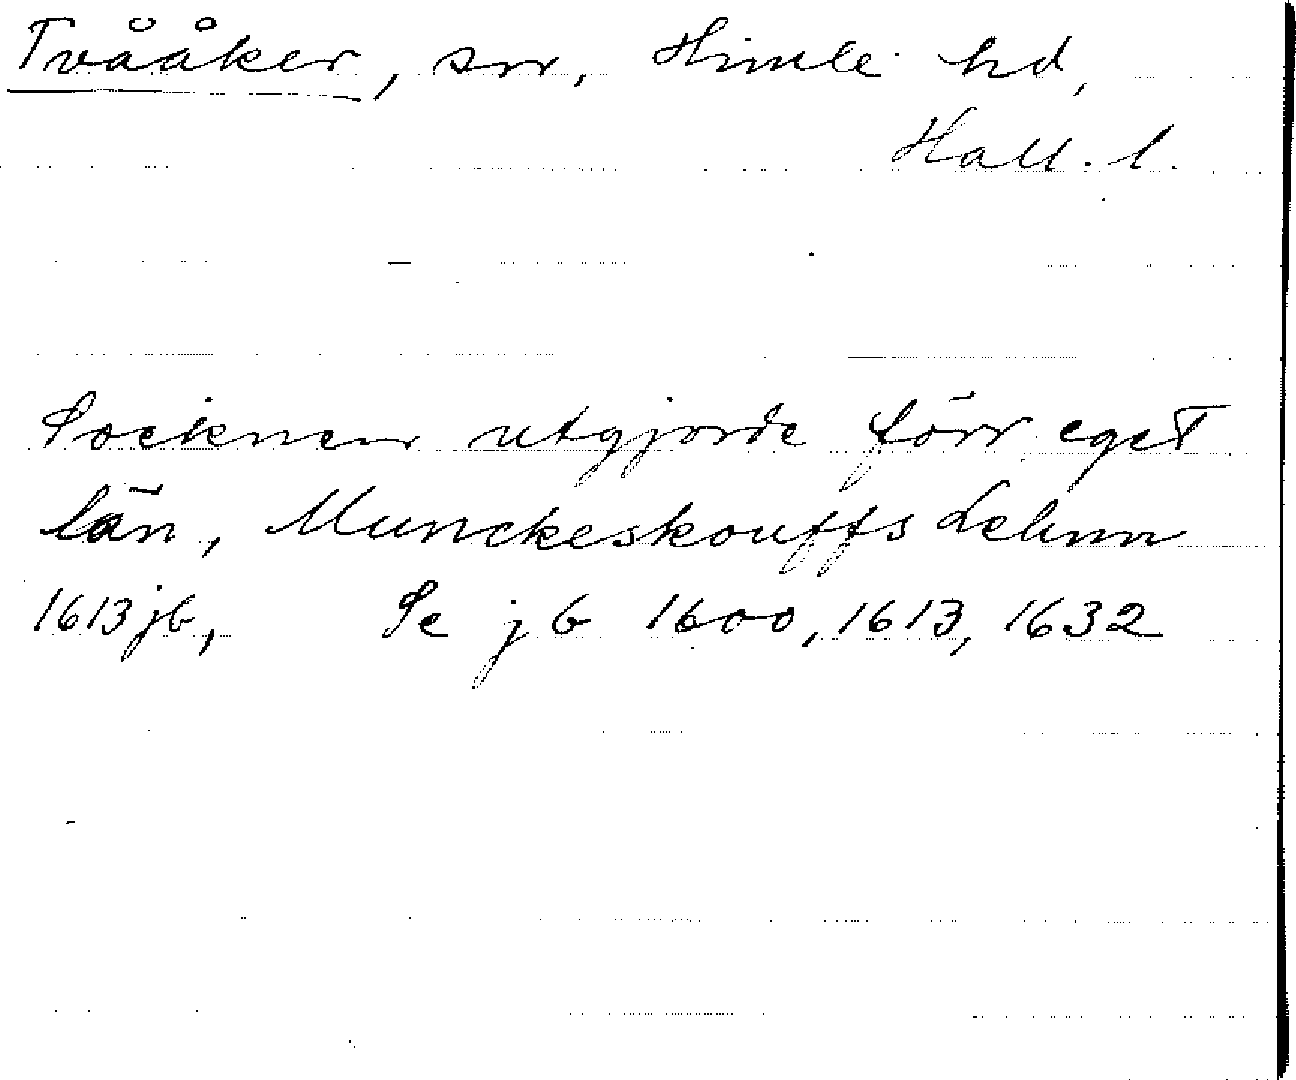 Tvååker, sn, Himle hd,
Hall. l.
Socknen utgjorde förr eget
län, Munckeskouffs Lehnn
1613 jb, Se jb 1600, 1613, 1632